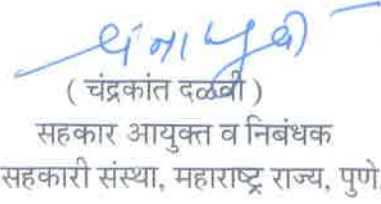 ( चंद्रकांत दळवी )
सहकार आयुक्त व निबंधक
सहकारी संस्था, महाराष्ट्र राज्य, पुणे